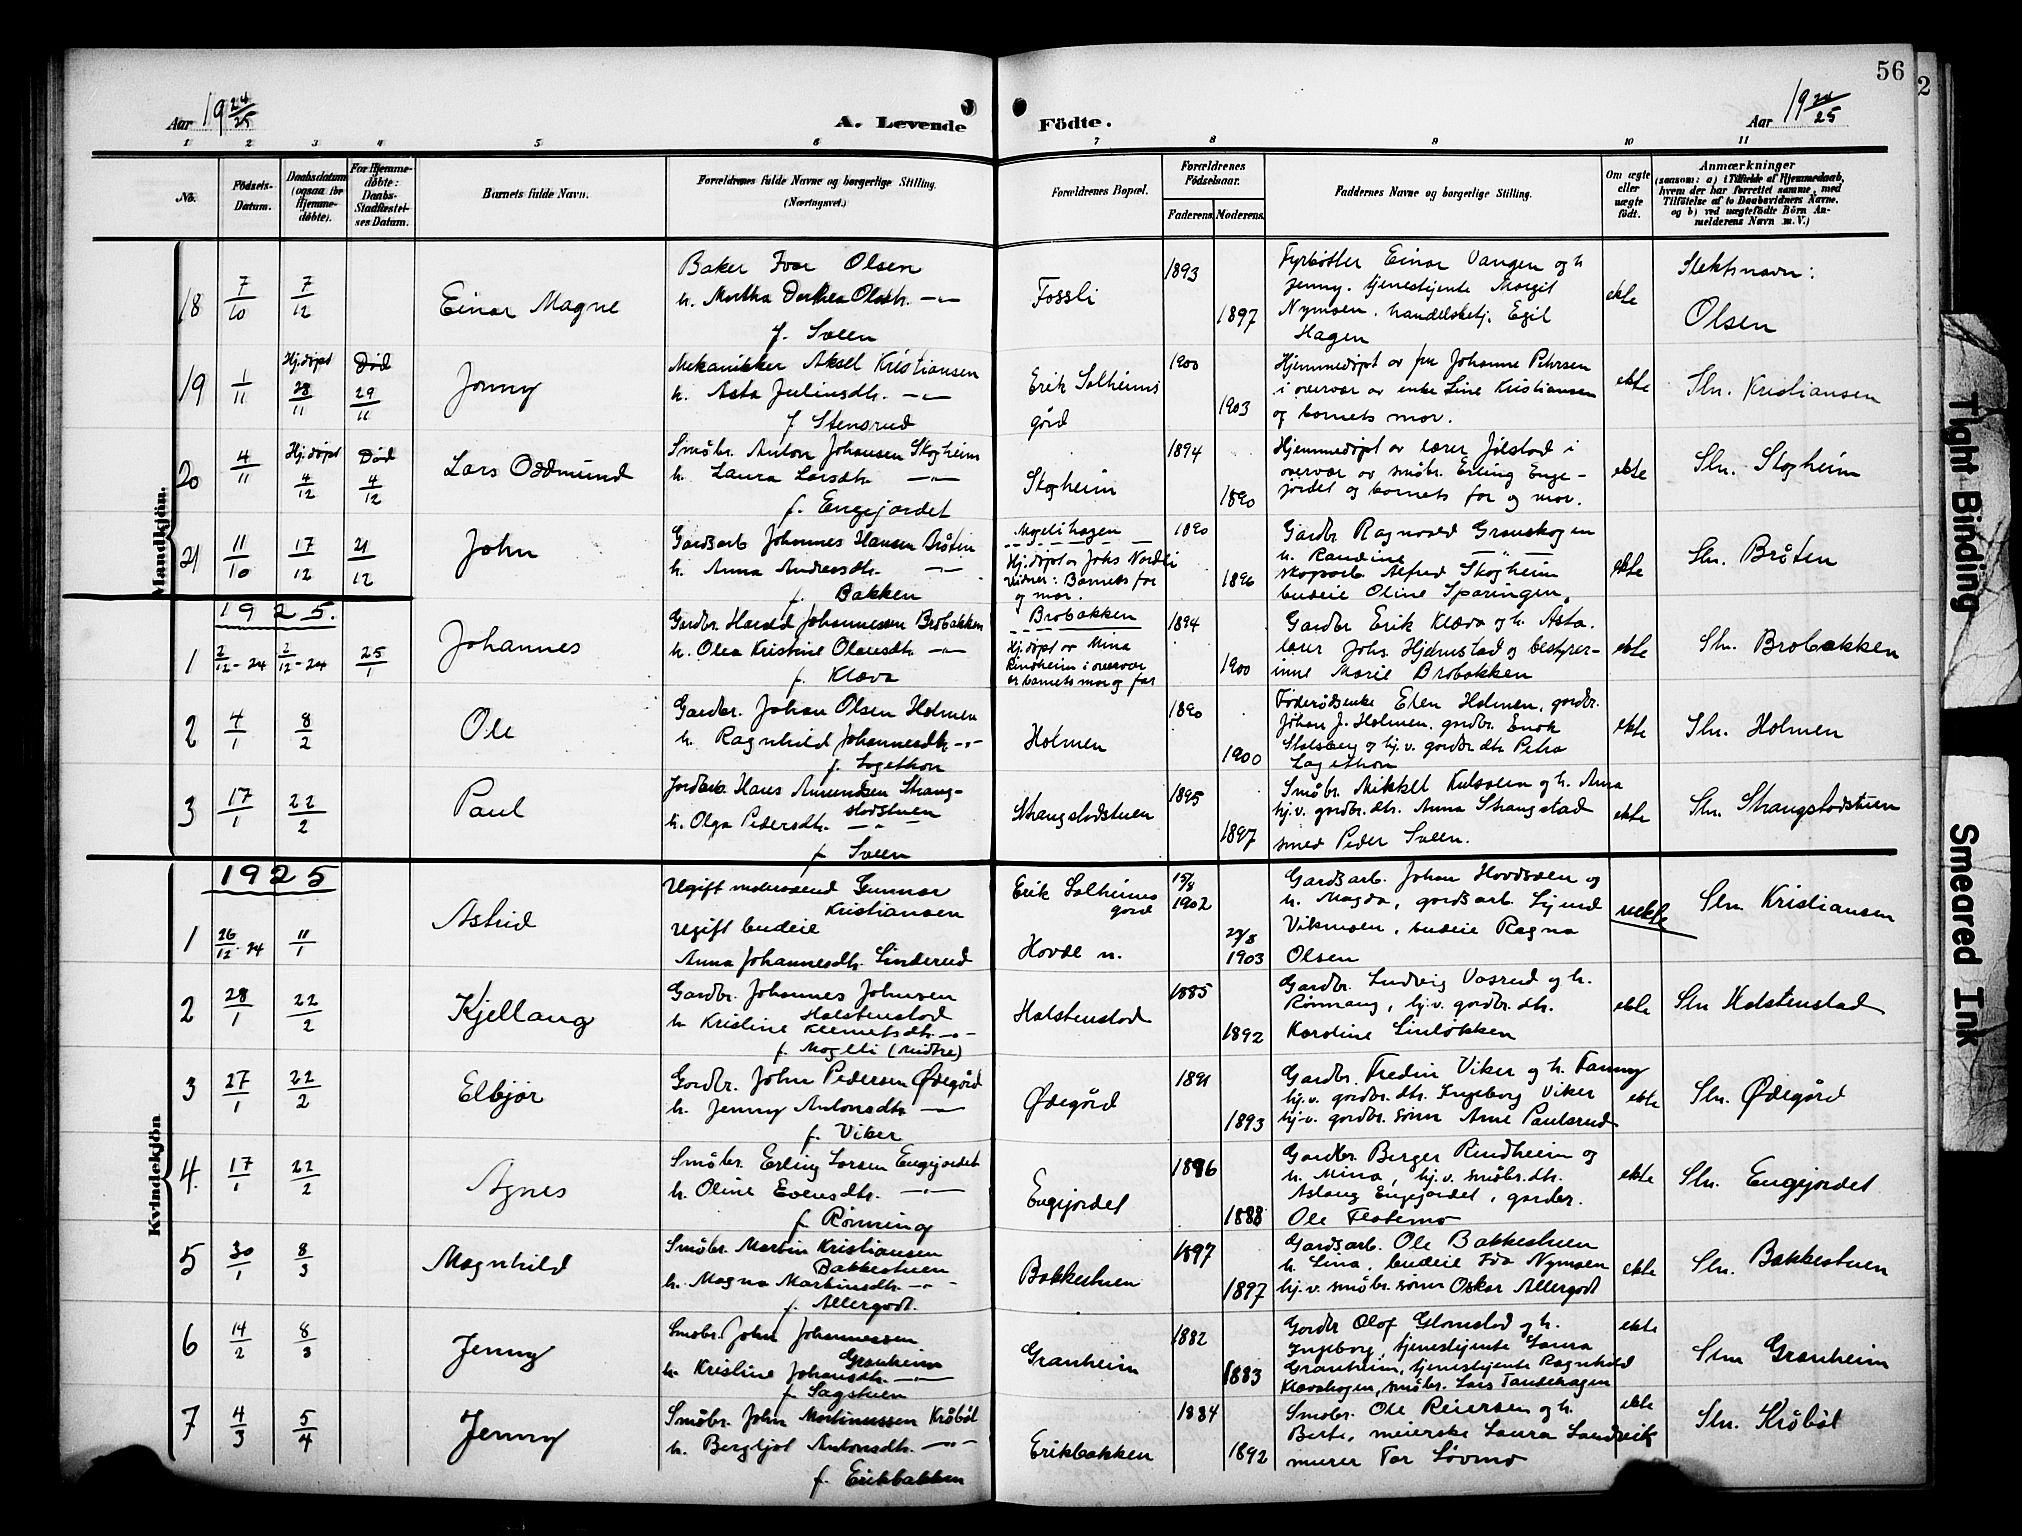 56
2
Aar 19 24/25
A. Levende
Födte.
Aar 19 24/25
1 2 3 4 5 6 7 8 9 10 11
No.
Födsels-
Datum.
Daabsdatum
(ogsaa for
Hjemme-
döbte).
For Hjemme-
döbte:
Daabs-
Stadfæstel-
ses Datum.
Barnets fulde Navn.
Forældrenes fulde Navne og borgerlige Stilling.
(Næringsvei.)
Forældrenes Bopæl.
Forældrenes
Födselsaar.
Faderens.
Moderens.
Faddernes Navne og borgerlige Stilling.
Om ægte
eller
uægte
födt.
Anmærkninger
(saasom: a) i Tilfælde af Hjemmedaab,
hvem der har forrettet samme, med
Tilföielse af to Daabsvidners Navne.
og b) ved uægtefödte Börn An-
melderens Navn m. V.)
Mandkjön.
18 7/10 7/12 Einar Magne
Baker Ivar Olsen
h. Martha Dorthea Olsdtr. -"-
f. Sveen
Fossli 1893 1897
Fyrbøtter Einar Vangen og h
Jenny. tjenestjente Margit
Nymoen. handelsbetj. Egil
Hagen
ekte
Slektsnavn:
Olsen
19 1/11 Hj.døpt 28/11 Død 29/11 Jonny
Mekanikker Aksel Kristiansen
h. Asta Juliusdtr. -"-
f. Stensrud
Erik Solheims
gård 1900 1903
Hjemmedøpt av fru Johanne Petersen
i overvær av enke Line Kristiansen
og barnets mor.
ekte
Sln. Kristiansen
20 4/11 Hj.døpt 4/12 Død 4/12 Lars Oddmund
Småbr. Anton Johansen Skogheim
h. Laura Larsdtr. -"-
f. Engejordet
Skogheim 1894 1890
Hjemmedøpt av lærer Jølstad i
overvær av småbr. Erling Enge-
jordet og barnets far og mor.
ekte
Sln. Skogheim
21 11/10 17/12 21/12 John
Gardsarb. Johannes Hansen Bråten
h. Anna Andersdtr. -"-
f. Bakken
Mælihagen
Hj.døpt av Johs Nordli
vidner: Barnets far
og mor.
1890 1896
Gardbr. Ragnvald Granskogen
h. Randine
skogsarb. Alfred Skogheim
budeie Oline Sparingen.
ekte
Sln. Bråten
1925.
1 2/12-24 2/12-24 25/1 Johannes
Gardbr. Harald Johannessen Brobakken
h. Olea Kristine Olausdtr. -"-
f. Kleva
Brobakken
Hj.døpt av Mina
Rindheim i overvær
av barnets mor og far
1894 1900
Gardbr Erik Kleva og h. Asta.
lærer Johs. Hjelmstad og bestyrer-
inne Marie Brobakken
ekte
Sln. Brobakken
2 4/1 8/2 Ole
Gardbr. Johan Olsen Holmen
h. Ragnhild Johannesdtr. -"-
f. Sagethon
Holmen 1890 1900
Føderådsenke Elen Holmen, gardbr.
Johan J. Holmen, gardbr. Enok
Stalsberg og hj.v. gardbr. dtr. Petra
Sagethon
ekte
Sln. Holmen
3 17/1 22/2 Paul
Jordbr. Hans Amundsen Strang-
stadstuen
h. Olga Pedersdtr. -"-
f. Sveen
Strangstadstuen 1895 1897
Småbr. Mikkel Kulsveen og h. Anna
hj.v. gardbr. dtr. Anna Strangstad
smed Peder Sveen.
ekte
Sln. Strangstadstuen
Kvindekjön
1925
1 26/12-24 11/1 Astrid
Ugift Gunnar
Kristiansen
ugift budeie
Anna Johannesdtr. Linderud
Erik Solheims
gard
Hovde n.
15/8 1902
1903
Gardsarb. Johan Hovdsveen og
h. Magda, gardsarb.
Vikmoen, budeie Ragna
Olsen
uekte
Sln. Kristiansen
2 28/1 22/2 Kjellaug
Gardbr. Johannes Johnsen
Holstenstad
h. Kristine Klemetsdtr. -"-
f. Mæhli (Midtre)
Holstenstad 1885 1892
Gardbr. Ludvig Vasrud og h.
Rønnaug, hj.v. gardbr. dtr.
Karoline Linløkken
ekte
Sln Holstenstad
3 27/1 22/2 Elbjør
Gardbr. John Pedersen Ødegård
h. Jenny Antonsdtr. -"-
f. Viker
Ødegård 1891 1893
Gardbr. Fredin Viker og h. Fanny
hj.v. gardbr. dtr. Ingeborg Viker
hj.v. gardbr. sønn Arne Paulsrud
ekte
Sln. Ødegård
4. 17/1 22/2 Agnes
Småbr. Erling Larsen Engejordet
h. Oline Evensdtr. -"-
f. Rønning
Engejordet 1886 1888
Gardbr Berger Rindheim og
h. Mina, hj.v. småbr. dtr.
Aslaug Engejordet, gardbr.
Ole Flatemo
ekte
Sln. Engejordet
5 30/1 8/3 Magnhild
Småbr. Martin Kristiansen
Bakkestuen
h. Magna Martinsdtr. -"-
f. Allergodt.
Bakkestuen 1897 1897
Gardsarb. Ole Bakkestuen
h. Lina, budeie Ida Nymoen
hj.v. småbr. sønn Oskar Allergodt
ekte
Sln. Bakkestuen
6 14/2 8/3 Jenny
Småbr. John Johannessen
Granheim
h. Kristine Johansdtr. -"-
f. Sagstuen
Granheim 1882 1883
Gardbr Olaf Glomstad og h.
Ingeborg, tjenestjente Laura
Granheim, tjenestjente Ragnhild
Klevahagen, småbr. Lars Tandehagen
ekte
Sln Granheim
7 4/3 5/4 Jenny
Småbr. John Martinussen Kråbøl
h. Bergljot Antonsdtr. -"-
f. Erikbakken
Erikbakken 1884 1892
Småbr. Ole Reiersen og h.
Berte, meierske Laura Sandvik
murer Tor Løvmo
ekte
Sln. Kråbøl
Tight Binding
Smeared Ink